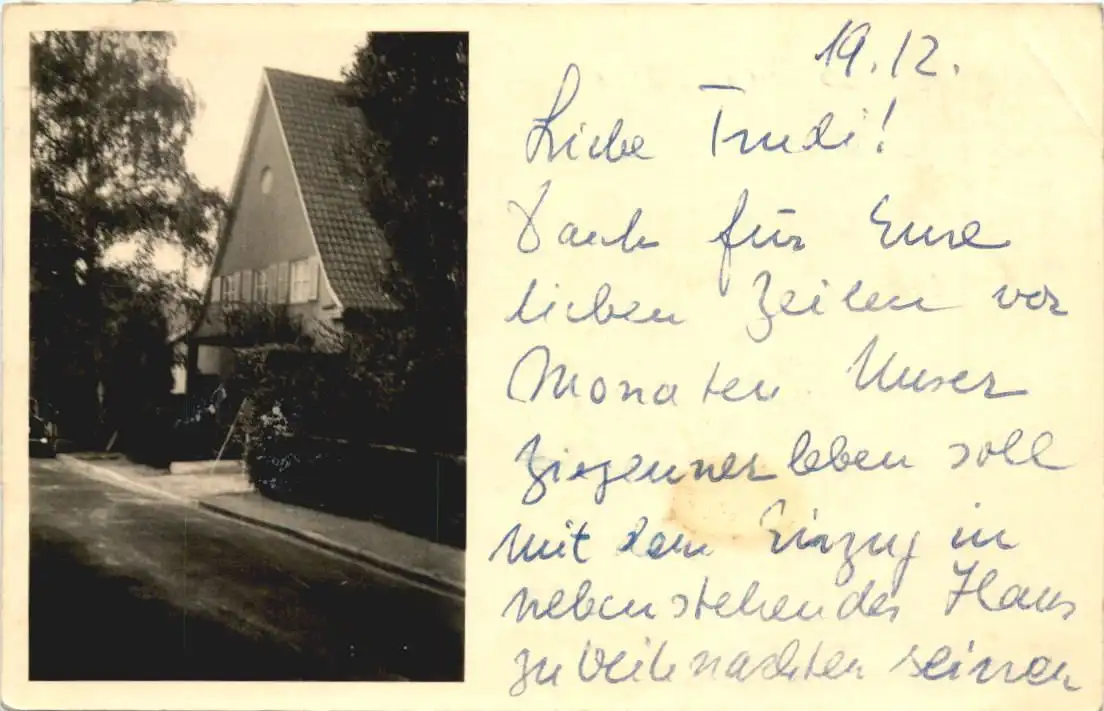 19.12.
Liebe Trudi!
Dank für Eure
lieben Zeilen vor
Monaten. Unser
Ziegeunerleben soll
mit dem Einzug in
nebenstehendes Haus
zu Weihnachten seinen